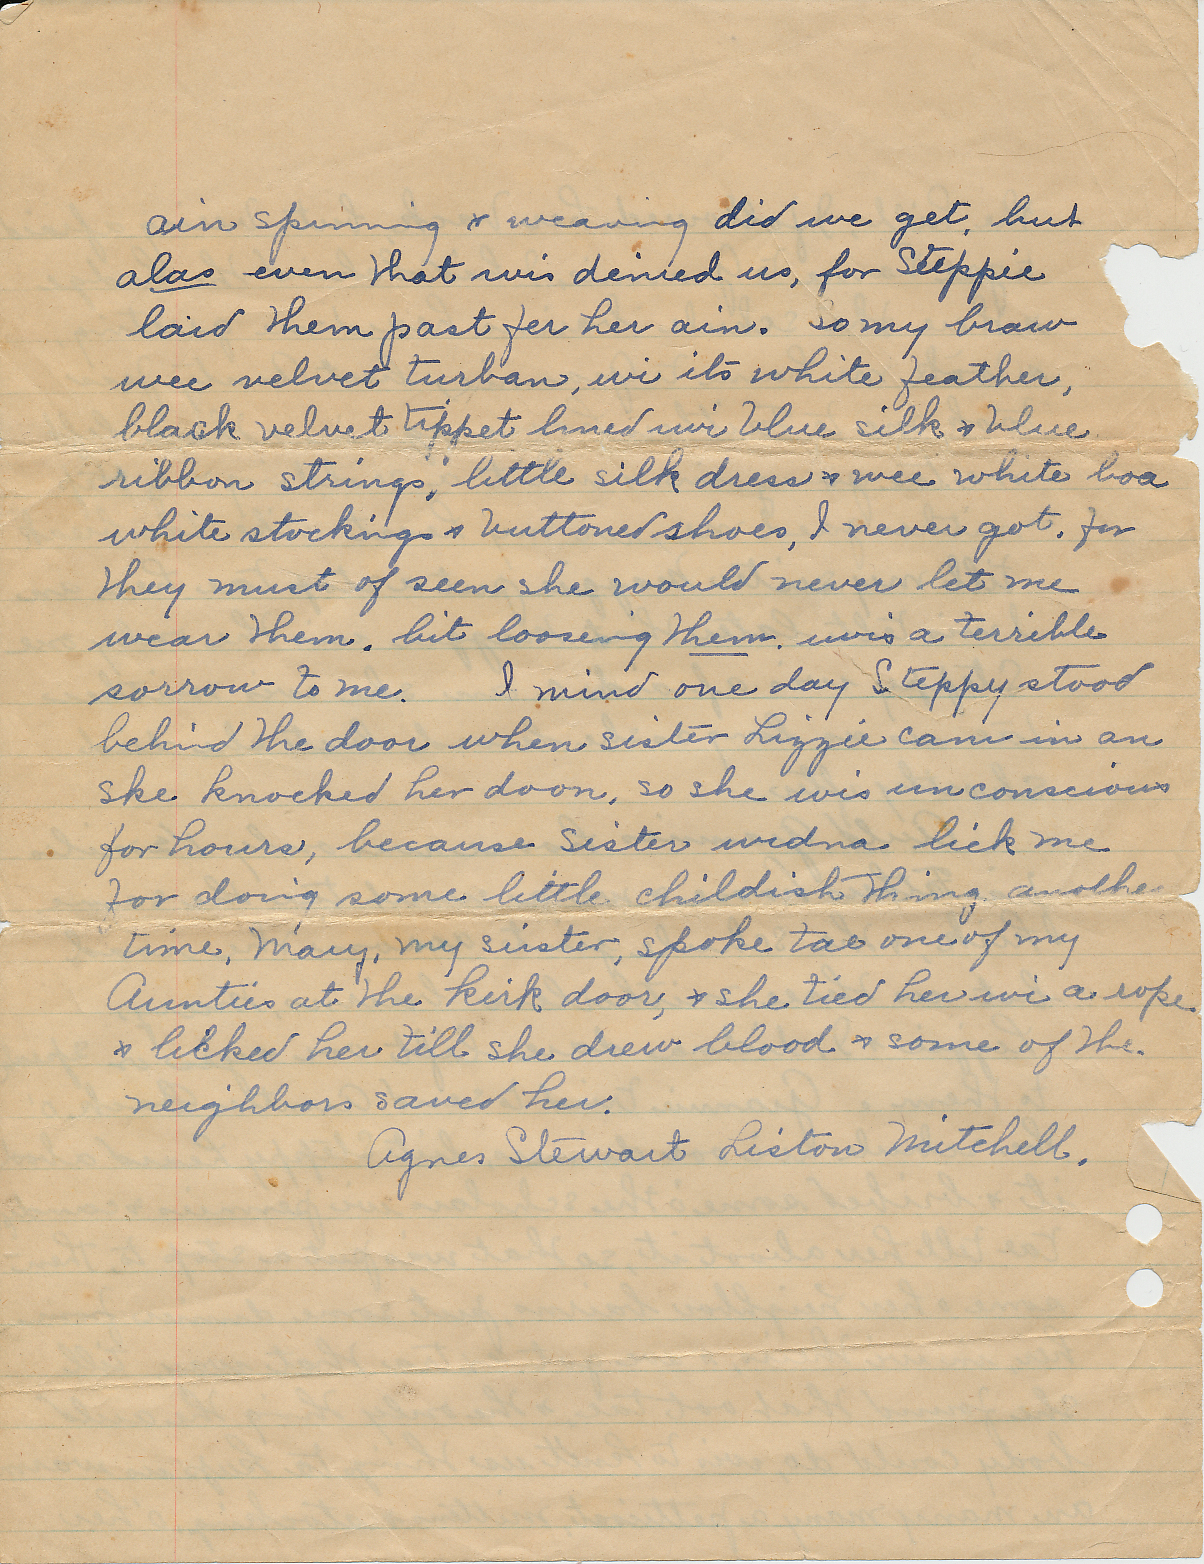 ain spinning & weaving did we get, but
alas even that wis denied us, for Steppie
laid them past fer her ain. So my braw
wee velvet turban, wi its white feather,
black velvet tippet lined wi blue silk & blue
ribbon strings, little silk dress & wee white boa
white stockings & buttoned shoes, I never got. for
they must of seen she would never let me
wear them. bit looseing them. wis a terrible
sorrow to me. I mind one day Steppy stood
behind the door when sister Lizzie cam in an
she knocked her doon, so she wis unconscious
for hours, because sister widna lick me
for doing some little childish thing anothe
time, Mary, my sister, spoke tae one of my
Aunties at the kirk door, & she tied her wi a rope
& licked her till she drew blood & some of the
neighbors saved her.
Agnes Stewart Liston Mitchell.